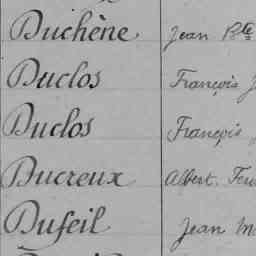 Duchêne Jean Bte
Duclos François
Duclos François
Ducreux Albert
Dufeil Jean